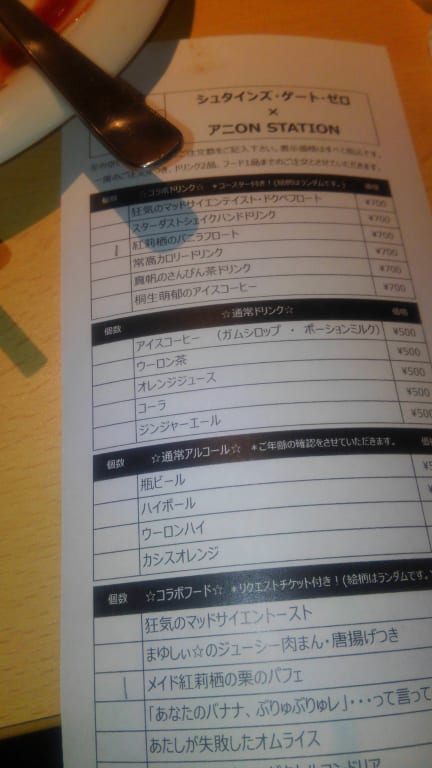 シュタインズ・ゲート・ゼロ
×
アニON STATION
注文数をご記入下さい。表示価格はすべて税込です。
ドリンク2品、フード1品までのご注文とさせていただきます。
個数 ☆コラボドリンク☆ *コースター付き！(絵柄はランダムです。) 価格
狂気のマッドサイエンテイスト・ドクペフロート ¥700
スターダストシェイクハンドドリンク ¥700
紅莉栖のバニラフロート ¥700
常高カロリードリンク ¥700
真帆のさんぴん茶ドリンク ¥700
桐生萌郁のアイスコーヒー ¥700
個数 ☆通常ドリンク☆ 価格
アイスコーヒー (ガムシロップ ・ ポーションミルク) ¥500
ウーロン茶 ¥500
オレンジジュース ¥500
コーラ ¥500
ジンジャーエール ¥500
個数 ☆通常アルコール☆ *ご年齢の確認をさせていただきます。
瓶ビール
ハイボール
ウーロンハイ
カシスオレンジ
個数 ☆コラボフード☆ *リクエストチケット付き！(絵柄はランダムです。
狂気のマッドサイエントースト
まゆしぃ☆のジューシー肉まん・唐揚げつき
メイド紅莉栖の栗のパフェ
「あなたのバナナ、ぶりゅぶりゅレ」・・・って言って
あたしが失敗したオムライス